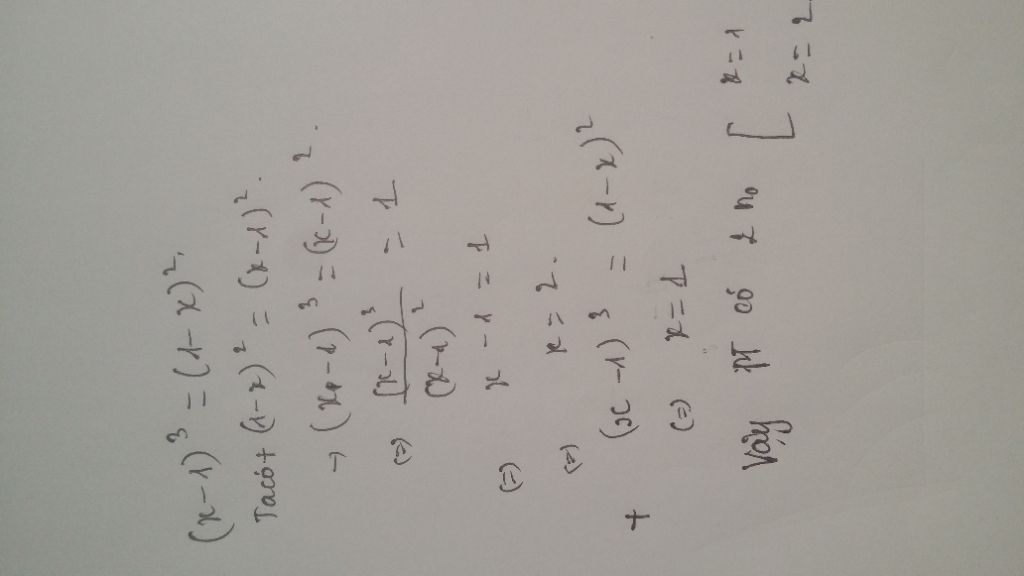 (x-1)³ = (1-x)².
Ta có + (1-x)² = (x-1)².
→ (x-1)³ = (x-1)².
(=) (x-1)³ / (x-1)² = 1
(=) x - 1 = 1
(=) x = 2.
+ (x-1)³ = (1-x)²
(=) x = 1
Vậy PT có 2 no [ x = 1
x = 2.